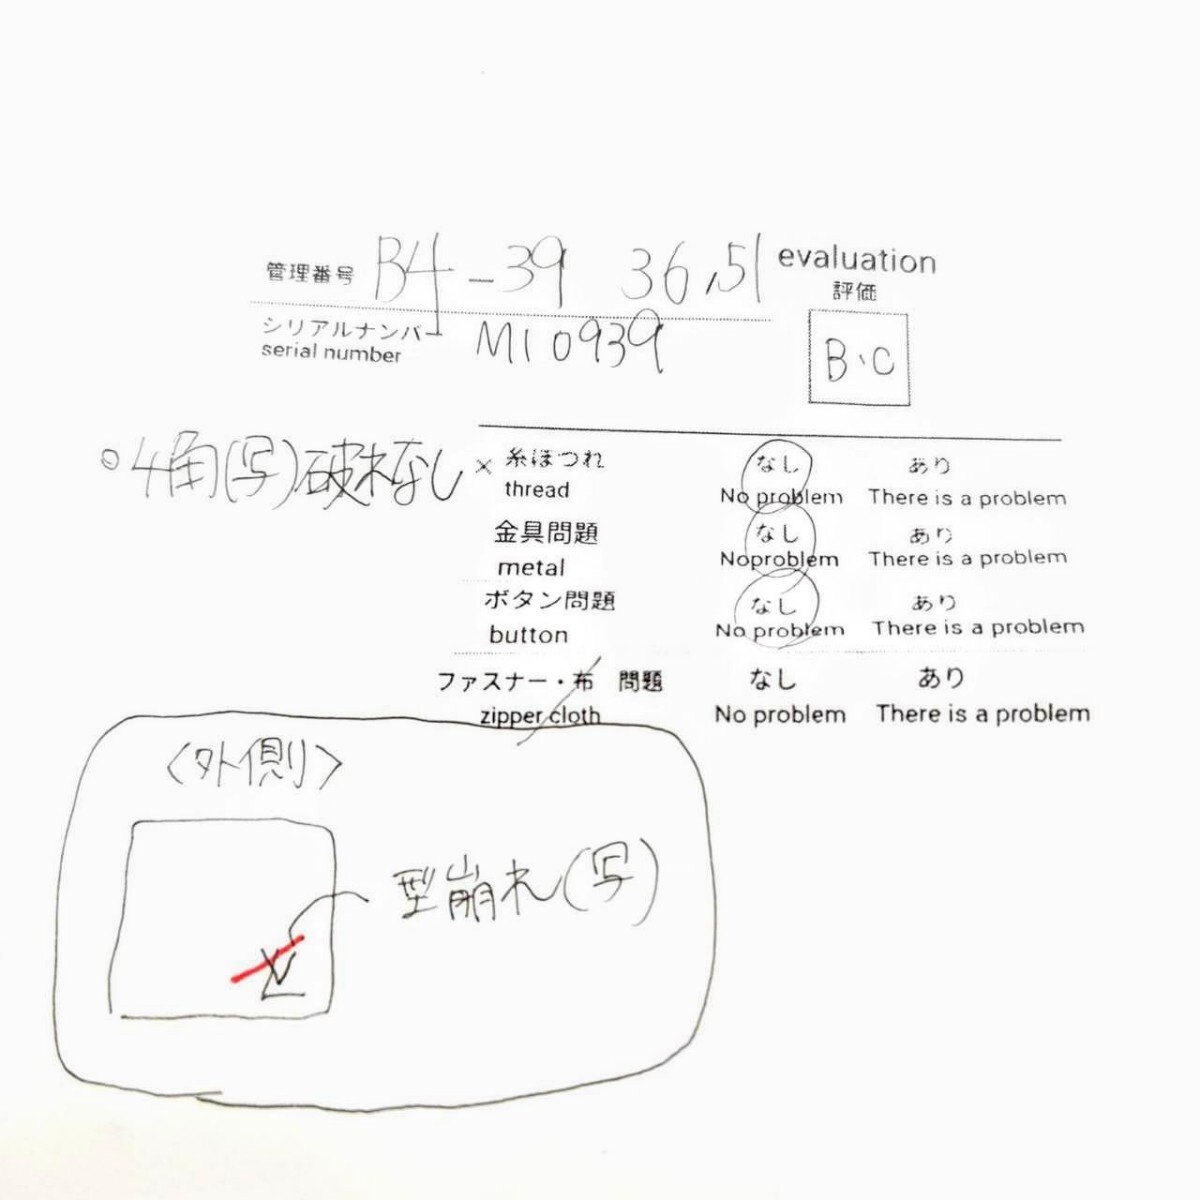 管理番号 B4-39 36,51
evaluation
評価
シリアルナンバー
serial number M10939
B・C
○4角(写)破れなし
× 糸ほつれ なし あり
thread No problem There is a problem
金具問題 なし あり
metal Noproblem There is a problem
ボタン問題 なし あり
button No problem There is a problem
ファスナー・布 問題 なし あり
zipper cloth No problem There is a problem
〈外側〉
型崩れ(写)